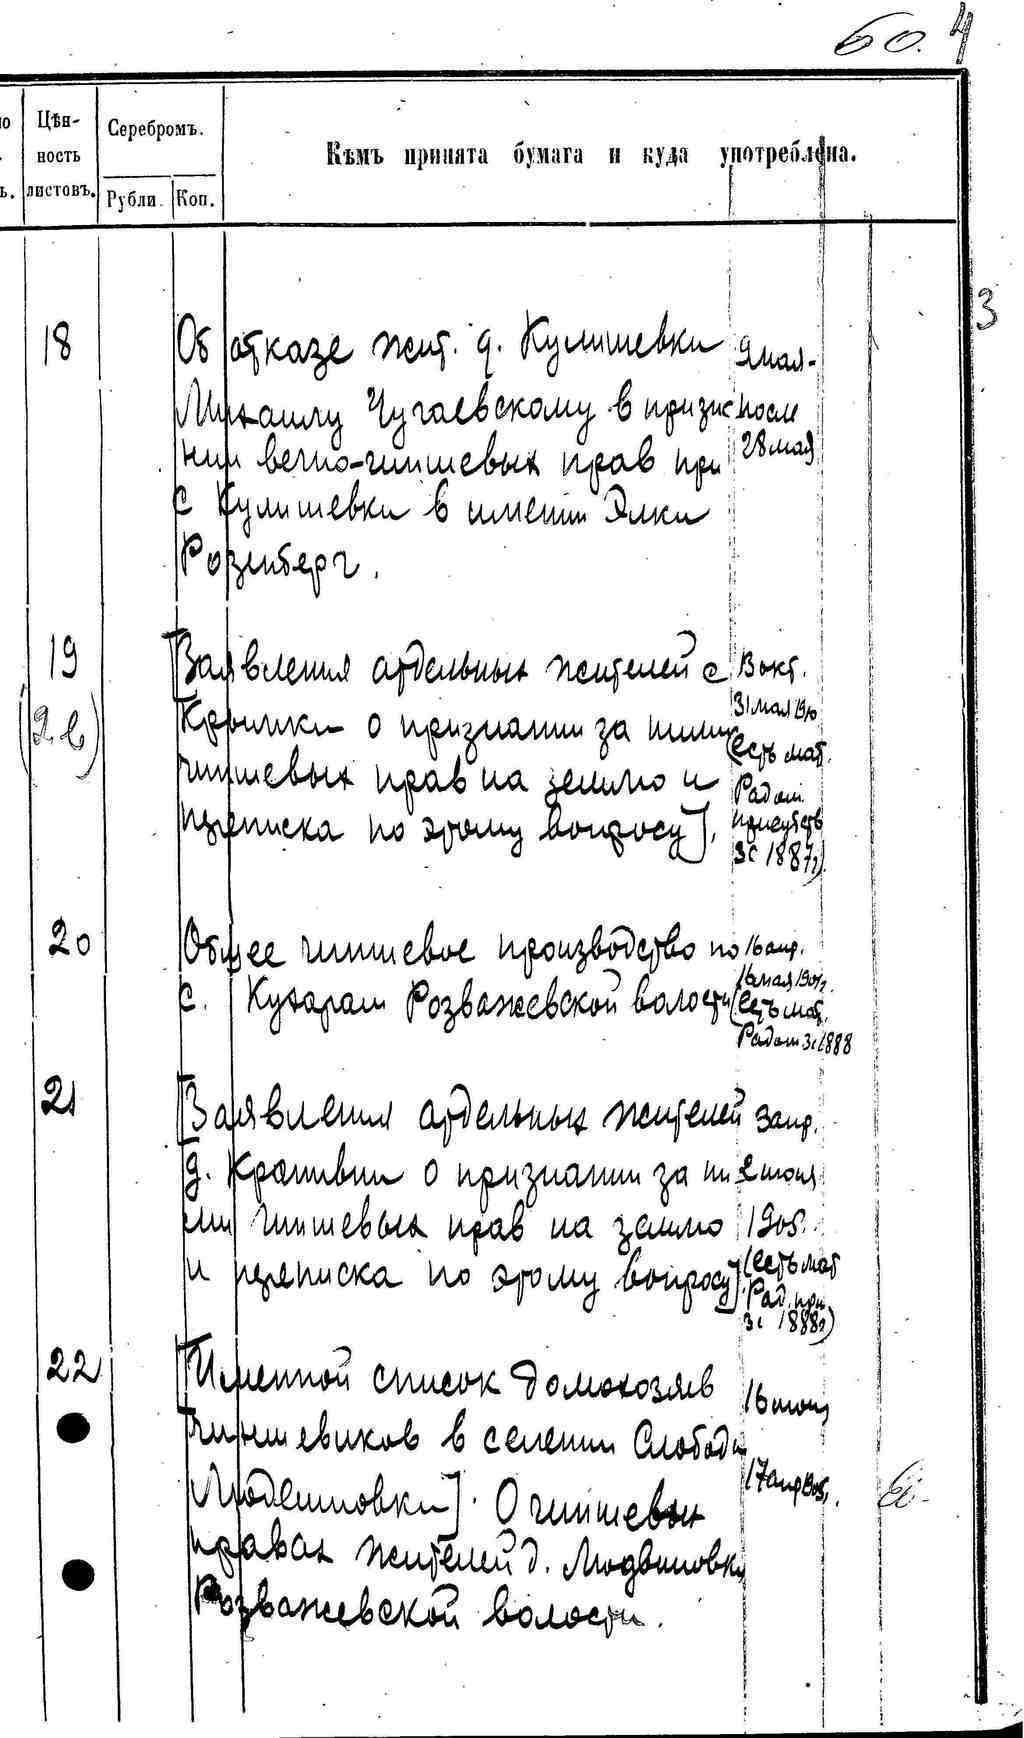 60. 4
Цѣн-
ность
листовъ.
Серебромъ.
Рубли. Коп.
Кѣмъ принята бумага и куда употреблена.
3
18 Об отказе жит. д. Кулишевки
Михаилу Чугаевскому в призна
нии вечно-чиншевых прав при
с Кулишевки в имении Элки
Розенберг.
9 мая-
после
28 мая
19 [Заявления отдельных жителей с
Крымки о признании за ними
чиншевых прав на землю и
переписка по этому вопросу].
31 мая 1910
(есть мат.
Радом.
присутств
зс 1887г)
20 Общее чиншевое производство по
с. Кухарам Розважевской волости
16 апр.
16 мая 1901г.
(есть мат.
Радом зс 1888
21 [Заявления отдельных жителей
д. Крапивни о признании за ни
ми чиншевых прав на землю
и переписка по этому вопросу].
3 апр.
2 июня
1905.
(есть мат
Рад. при
зс 1888г)
22 [Именной список домохозяев
чиншевиков в селении Слободы
Людвиновки]. О чиншевых
правах жителей д. Людвиновки
Розважевской волости.
16 июня
17 апр 1905.